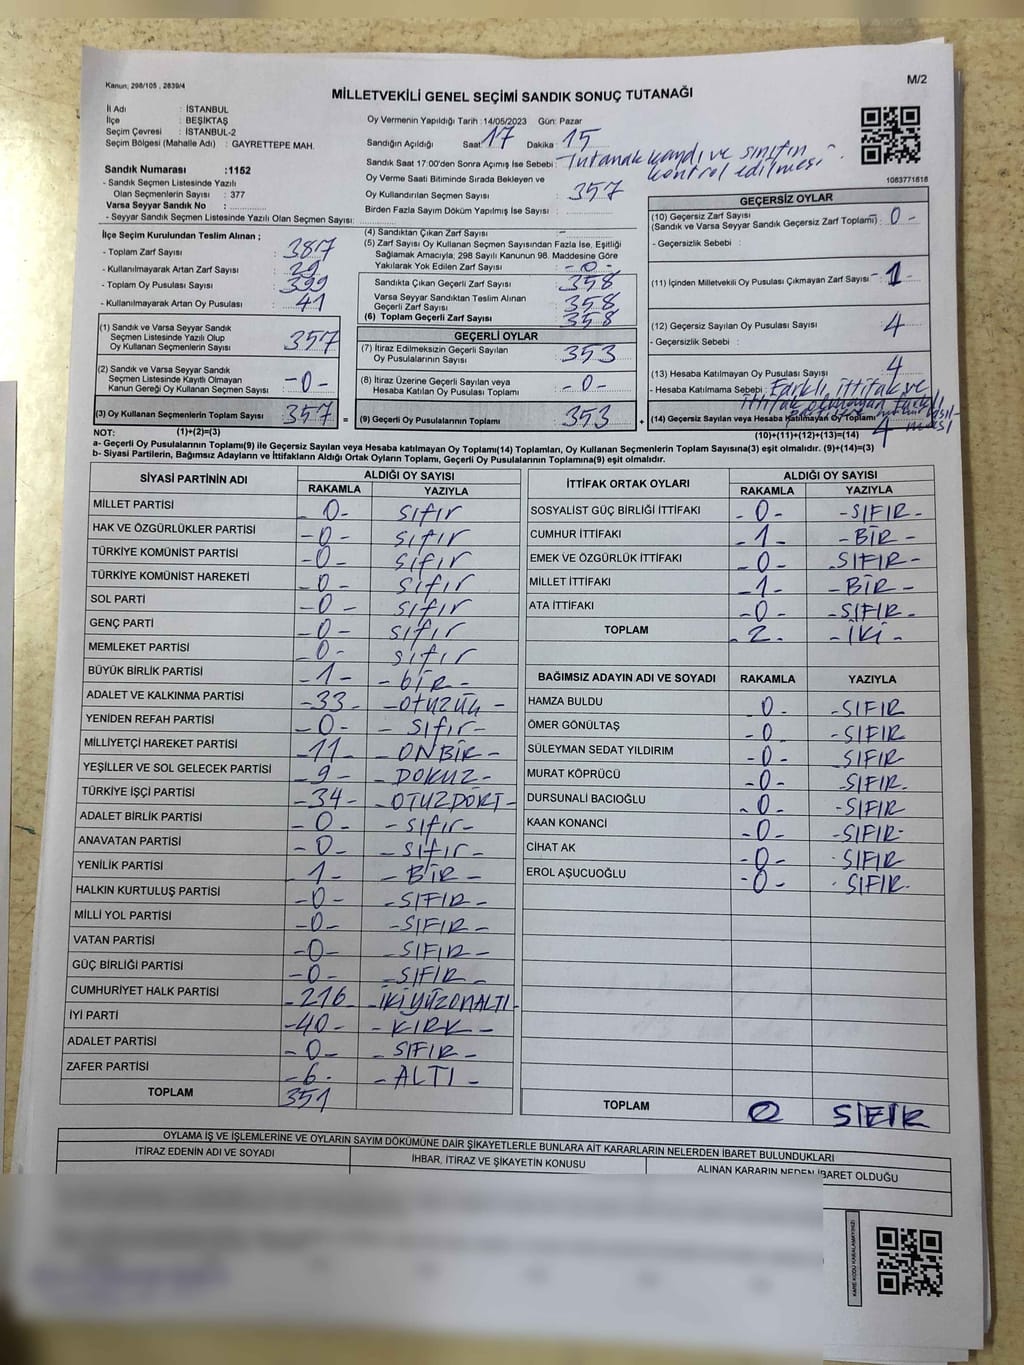 Kanun; 298/105 , 2839/4
M/2
MİLLETVEKİLİ GENEL SEÇİMİ SANDIK SONUÇ TUTANAĞI
İl Adı : İSTANBUL
İlçe : BEŞİKTAŞ
Seçim Çevresi : İSTANBUL-2
Seçim Bölgesi (Mahalle Adı) : GAYRETTEPE MAH.
Oy Vermenin Yapıldığı Tarih :14/05/2023 Gün: Pazar
Sandığın Açıldığı Saat 17 Dakika : 15
Sandık Saat 17:00'den Sonra Açılmış İse Sebebi : Tutanak kaydı ve sınıfın
kontrol edilmesi
Oy Verme Saati Bitiminde Sırada Bekleyen ve
Oy Kullandırılan Seçmen Sayısı : 357
Birden Fazla Sayım Döküm Yapılmış İse Sayısı :
1063771616
Sandık Numarası :1152
- Sandık Seçmen Listesinde Yazılı
Olan Seçmenlerin Sayısı : 377
Varsa Seyyar Sandık No :
- Seyyar Sandık Seçmen Listesinde Yazılı Olan Seçmen Sayısı:
İlçe Seçim Kurulundan Teslim Alınan ;
- Toplam Zarf Sayısı : 387
- Kullanılmayarak Artan Zarf Sayısı : 29
- Toplam Oy Pusulası Sayısı : 399
- Kullanılmayarak Artan Oy Pusulası : 41
(1) Sandık ve Varsa Seyyar Sandık
Seçmen Listesinde Yazılı Olup
Oy Kullanan Seçmenlerin Sayısı : 357
(2) Sandık ve Varsa Seyyar Sandık
Seçmen Listesinde Kayıtlı Olmayan
Kanun Gereği Oy Kullanan Seçmen Sayısı : -0-
(3) Oy Kullanan Seçmenlerin Toplam Sayısı : 357 =
(1)+(2)=(3)
(4) Sandıktan Çıkan Zarf Sayısı : -
(5) Zarf Sayısı Oy Kullanan Seçmen Sayısından Fazla İse, Eşitliği
Sağlamak Amacıyla; 298 Sayılı Kanunun 98. Maddesine Göre
Yakılarak Yok Edilen Zarf Sayısı : -0-
Sandıkta Çıkan Geçerli Zarf Sayısı : 358
Varsa Seyyar Sandıktan Teslim Alınan
Geçerli Zarf Sayısı : 358
(6) Toplam Geçerli Zarf Sayısı : 358
GEÇERLİ OYLAR
(7) İtiraz Edilmeksizin Geçerli Sayılan
Oy Pusulalarının Sayısı : 353
(8) İtiraz Üzerine Geçerli Sayılan veya
Hesaba Katılan Oy Pusulalarının Sayısı : -0-
(9) Geçerli Oy Pusulalarının Toplamı : 353 +
GEÇERSİZ OYLAR
(10) Geçersiz Zarf Sayısı
(Sandık ve Varsa Seyyar Sandık Geçersiz Zarf Toplamı) : -0-
- Geçersizlik Sebebi :
(11) İçinden Milletvekili Oy Pusulası Çıkmayan Zarf Sayısı : - 1
(12) Geçersiz Sayılan Oy Pusulası Sayısı : 4
- Geçersizlik Sebebi :
(13) Hesaba Katılmayan Oy Pusulası Sayısı : 4
- Hesaba Katılmama Sebebi : Farklı ittifak ve
ittifak olmayan farklı
(14) Geçersiz Sayılan veya Hesaba Katılmayan Oy Toplamı : 4
(10)+(11)+(12)+(13)=(14)
NOT:
a- Geçerli Oy Pusulalarının Toplamı(9) ile Geçersiz Sayılan veya Hesaba katılmayan Oy Toplamı(14) Toplamları, Oy Kullanan Seçmenlerin Toplam Sayısına(3) eşit olmalıdır. (9)+(14)=(3)
b- Siyasi Partilerin, Bağımsız Adayların ve İttifakların Aldığı Ortak Oyların Toplamı, Geçerli Oy Pusulalarının Toplamına(9) eşit olmalıdır.
SİYASİ PARTİNİN ADI ALDIĞI OY SAYISI
RAKAMLA YAZIYLA
MİLLET PARTİSİ -0- sıfır
HAK VE ÖZGÜRLÜKLER PARTİSİ -0- sıfır
TÜRKİYE KOMÜNİST PARTİSİ -0- sıfır
TÜRKİYE KOMÜNİST HAREKETİ -0- sıfır
SOL PARTİ -0- sıfır
GENÇ PARTİ -0- sıfır
MEMLEKET PARTİSİ -0- sıfır
BÜYÜK BİRLİK PARTİSİ -1- -bİR-
ADALET VE KALKINMA PARTİSİ -33- -OTUZÜÇ-
YENİDEN REFAH PARTİSİ -0- -sıfır-
MİLLİYETÇİ HAREKET PARTİSİ -11- -ONBİR-
YEŞİLLER VE SOL GELECEK PARTİSİ -9- -DOKUZ-
TÜRKİYE İŞÇİ PARTİSİ -34- -OTUZDÖRT-
ADALET BİRLİK PARTİSİ -0- -sıfır-
ANAVATAN PARTİSİ -0- -sıfır-
YENİLİK PARTİSİ -1- -BİR-
HALKIN KURTULUŞ PARTİSİ -0- -SIFIR-
MİLLİ YOL PARTİSİ -0- -SIFIR-
VATAN PARTİSİ -0- -SIFIR-
GÜÇ BİRLİĞİ PARTİSİ -0- -SIFIR-
CUMHURİYET HALK PARTİSİ -216- -İKİYÜZONALTI-
İYİ PARTİ -40- -KIRK-
ADALET PARTİSİ -0- -SIFIR-
ZAFER PARTİSİ -6- -ALTI-
TOPLAM 351
İTTİFAK ORTAK OYLARI ALDIĞI OY SAYISI
RAKAMLA YAZIYLA
SOSYALİST GÜÇ BİRLİĞİ İTTİFAKI -0- -SIFIR-
CUMHUR İTTİFAKI -1- -BİR-
EMEK VE ÖZGÜRLÜK İTTİFAKI -0- -SIFIR-
MİLLET İTTİFAKI -1- -BİR-
ATA İTTİFAKI -0- -SIFIR-
TOPLAM -2- -İKİ-
BAĞIMSIZ ADAYIN ADI VE SOYADI RAKAMLA YAZIYLA
HAMZA BULDU -0- -SIFIR
ÖMER GÖNÜLTAŞ -0- -SIFIR
SÜLEYMAN SEDAT YILDIRIM -0- -SIFIR
MURAT KÖPRÜCÜ -0- -SIFIR-
DURSUNALİ BACIOĞLU -0- -SIFIR
KAAN KONANCİ -0- -SIFIR-
CİHAT AK -0- -SIFIR
EROL AŞUCUOĞLU -0- -SIFIR-
TOPLAM 0 SIFIR
OYLAMA İŞ VE İŞLEMLERİNE VE OYLARIN SAYIM DÖKÜMÜNE DAİR ŞİKAYETLERLE BUNLARA AİT KARARLARIN NELERDEN İBARET BULUNDUKLARI
İTİRAZ EDENİN ADI VE SOYADI İHBAR, İTİRAZ VE ŞİKAYETİN KONUSU ALINAN KARARIN NEDEN İBARET OLDUĞU
KARE KODU KARALAMAYINIZ!